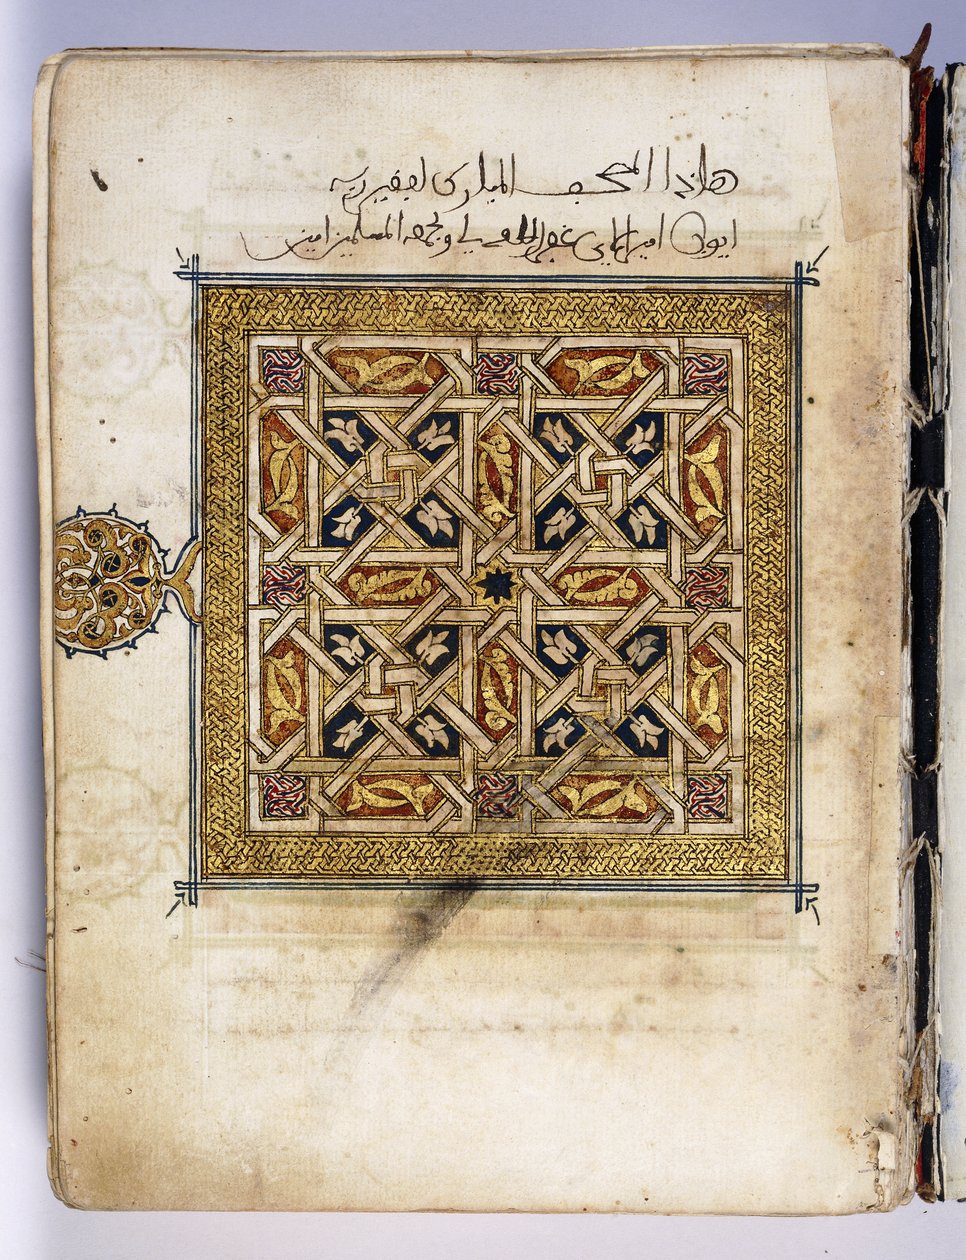 هاذا المصحف المبارك لفقير ربه
ايوب غفر الله وجميع المسلمين امين